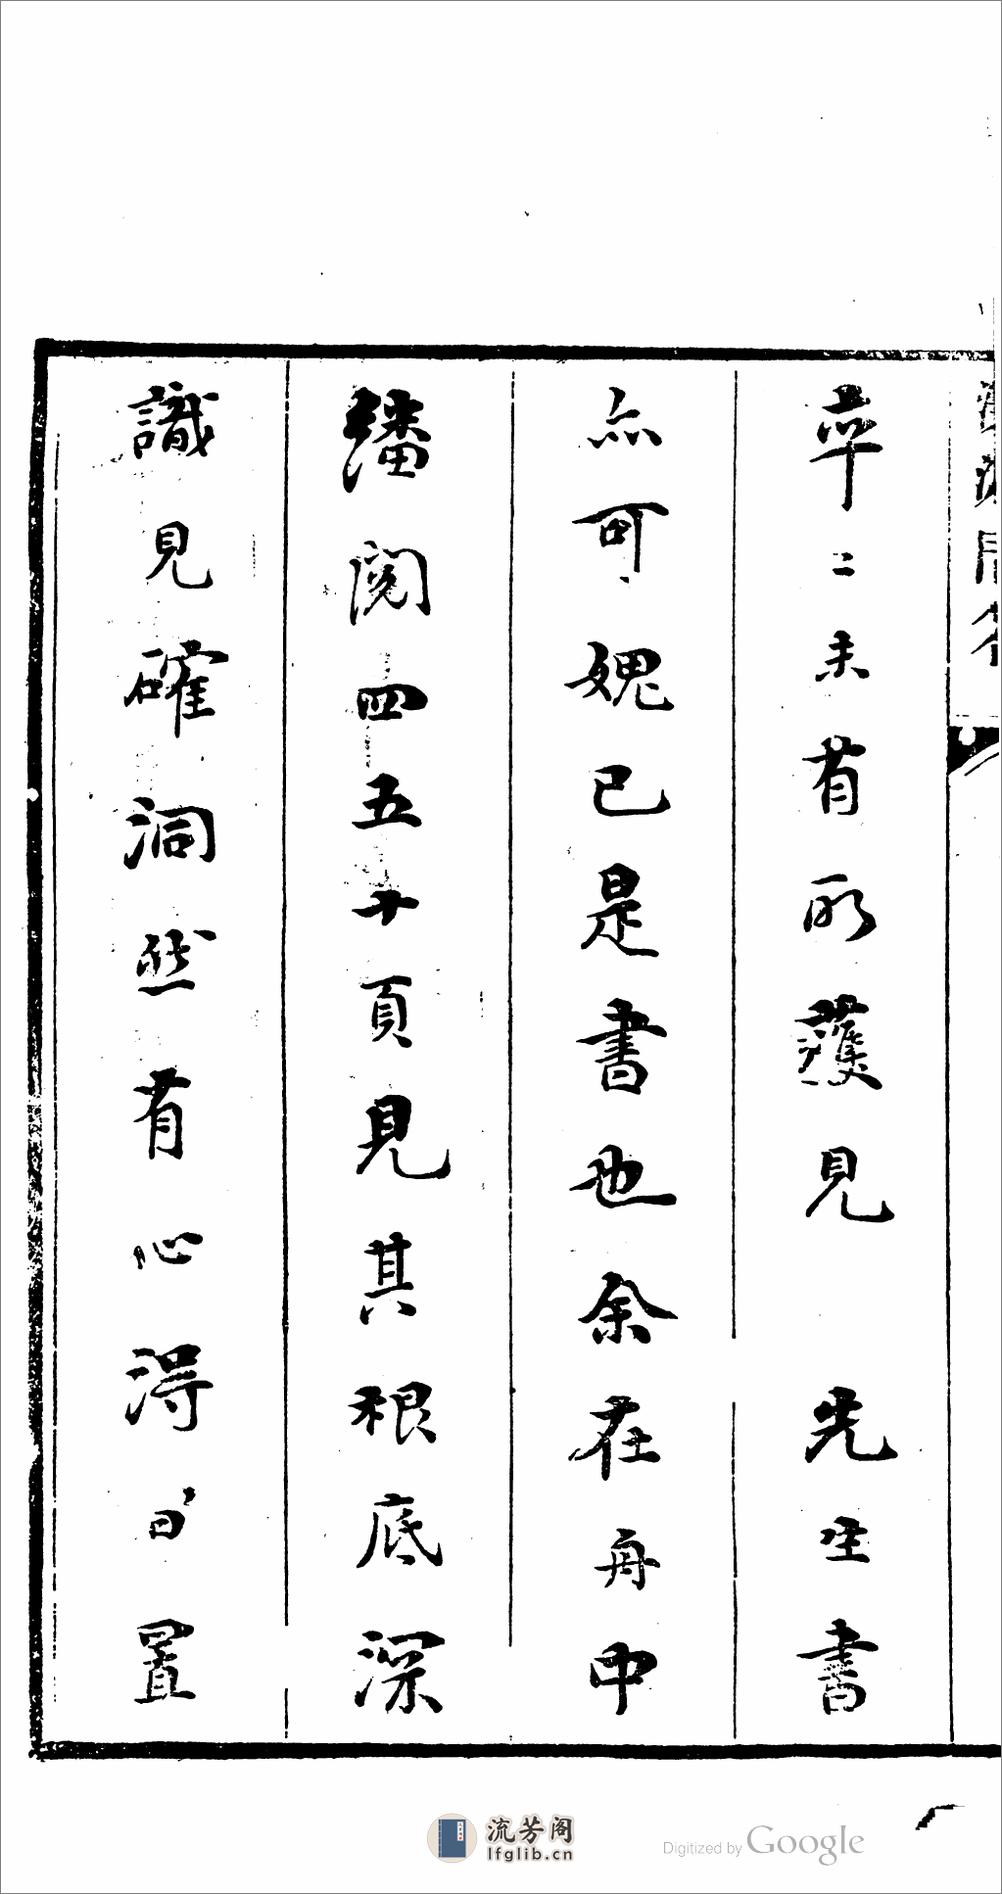 卒二未有所獲見　先生書
亦可媿已是書也余在舟中
繙閱四五十頁見其根底深
識見確洞然有心得日置
流芳阁
lfglib.cn
Digitized by Google